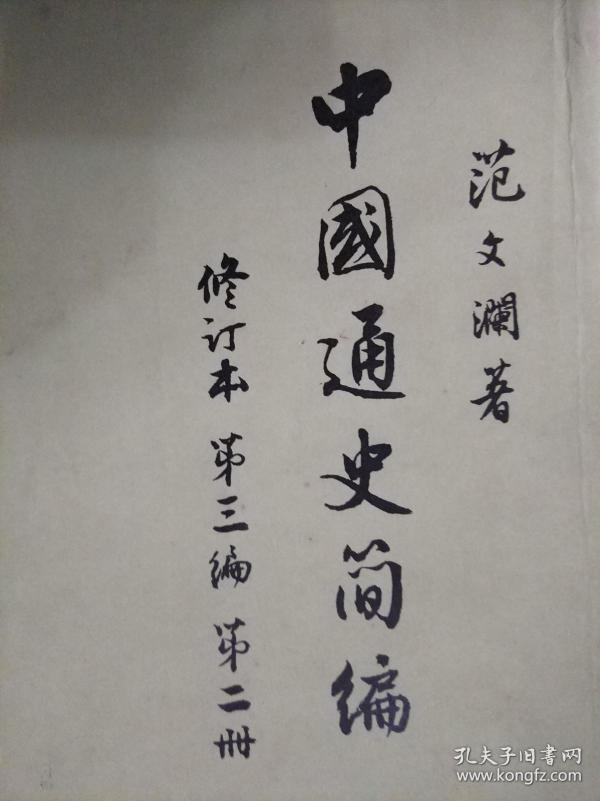 范文瀾著
中國通史简编
修订本 第三编 第二冊
孔夫子旧書网
www.kongfz.com